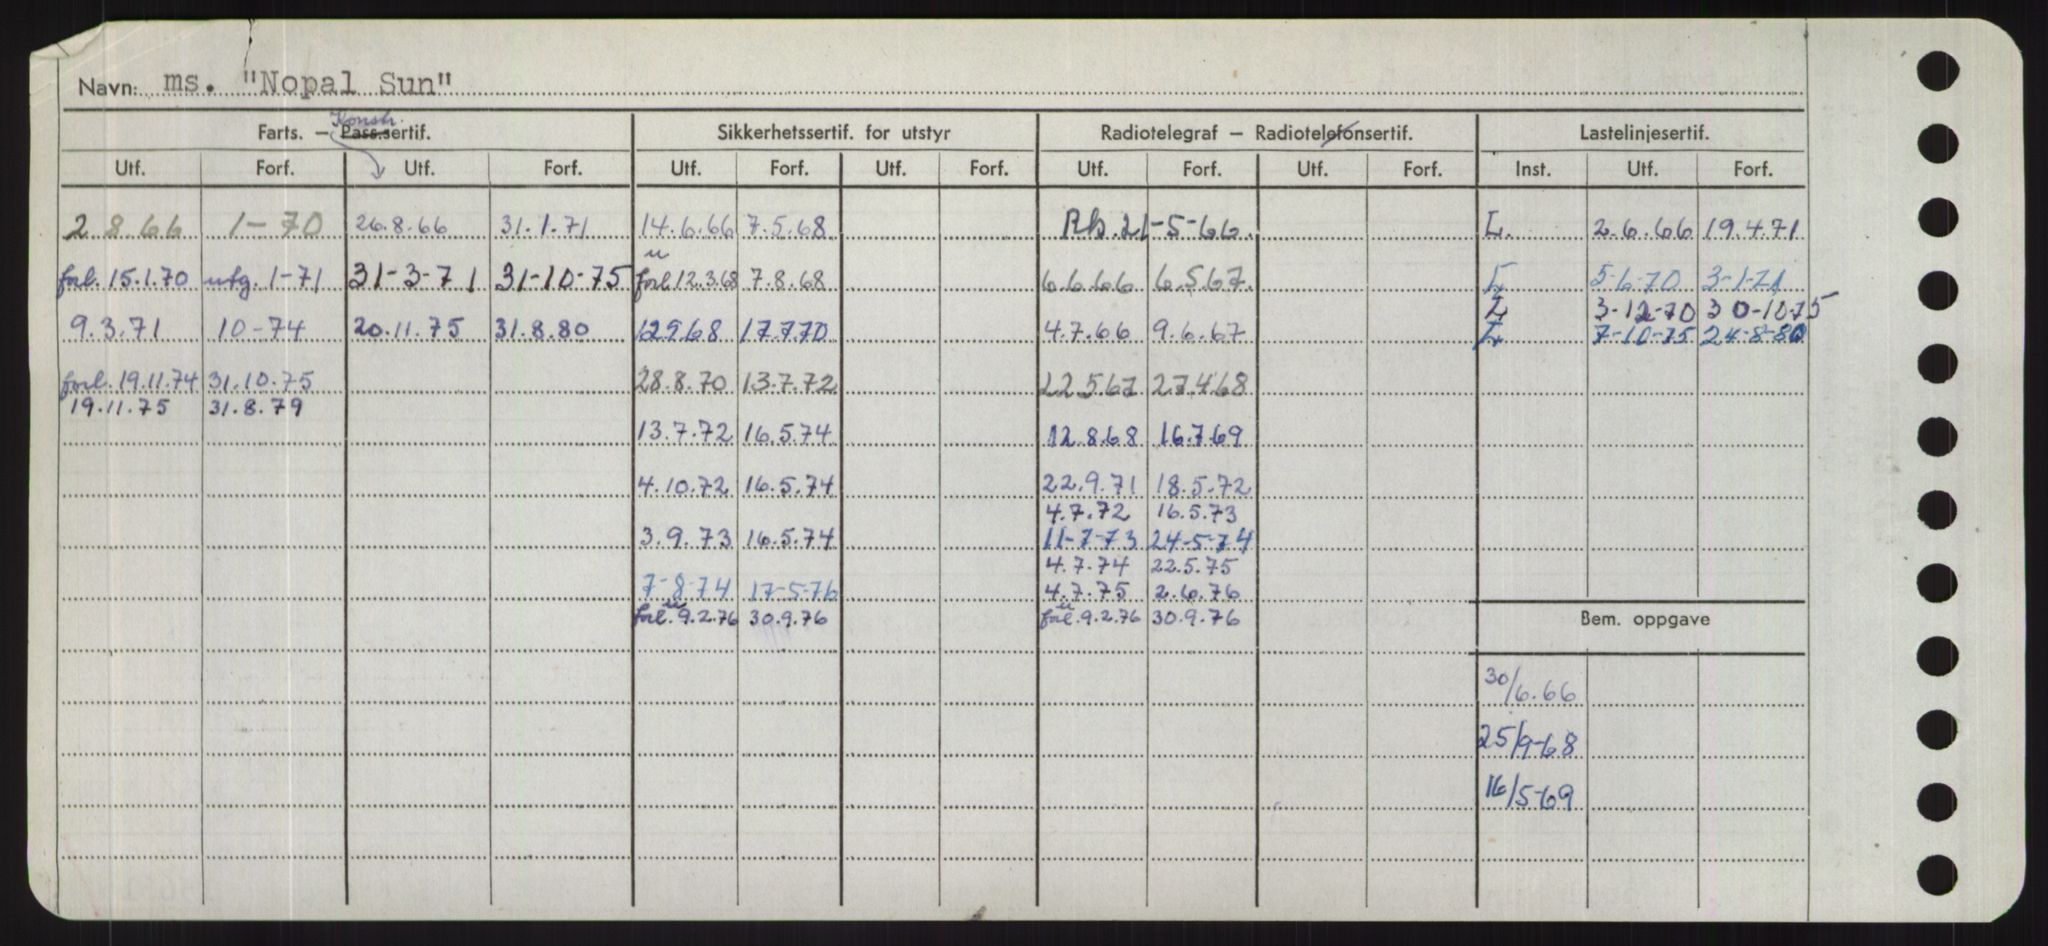 Navn: ms. "Nopal Sun"
Konstr.
Farts. – Pass.sertif. Sikkerhetssertif. for utstyr Radiotelegraf – Radiotelefonsertif. Lastelinjesertif.
Utf. Forf. Utf. Forf. Utf. Forf. Utf. Forf. Utf. Forf. Utf. Forf. Inst. Utf. Forf.
2 8.66 1-70 26.8.66 31.1.71 14.6.66 7.5.68 Rb. 21-5-66. L. 2.6.66 19.4.71
forl. 15.1.70 utg. 1-71 31-3-71 31-10-75 forl 12.3.68 7.8.68 6.6.66 6.5.67. L 5-6-70 3-1-71
L 3-12-70 30-10-75
9.3.71 10-74 20.11.75 31.8.80 12968 17.7.70 4.7.66 9.6.67 L 7-10-75 24-8-80
forl. 19.11.74 31.10.75 28.8.70 13.7.72 22.5.67 27.4.68
19.11.75 31.8.79
13.7.72 16.5.74 12.8.68 16.7.69
4.10.72 16.5.74 22.9.71 18.5.72
4.7.72 16.5.73
3.9.73 16.5.74 11-7-73 24-5-74
4.7.74 22.5.75
7-8-74 17-5-76 4.7.75 2.6.76
forl. 9.2.76 30.9.76 forl. 9.2.76 30.9.76
Bem. oppgave
30/6.66
25/9-68
16/5-69